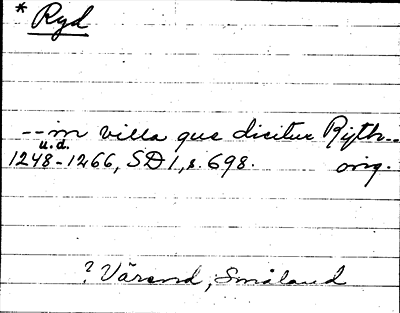 * Ryd
-- in villa que dicitur Ryth--
u.d.
1248-1266, SD 1, s. 698. orig.
? Värend, Småland